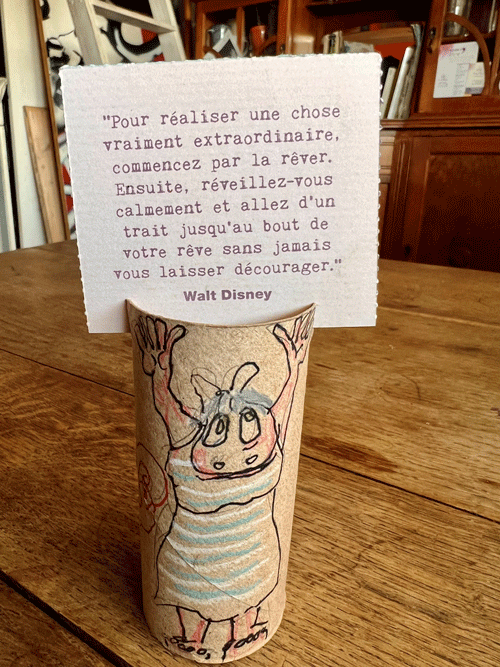 "Pour réaliser une chose
vraiment extraordinaire,
commencez par la rêver.
Ensuite, réveillez-vous
calmement et allez d'un
trait jusqu'au bout de
votre rêve sans jamais
vous laisser décourager."
Walt Disney